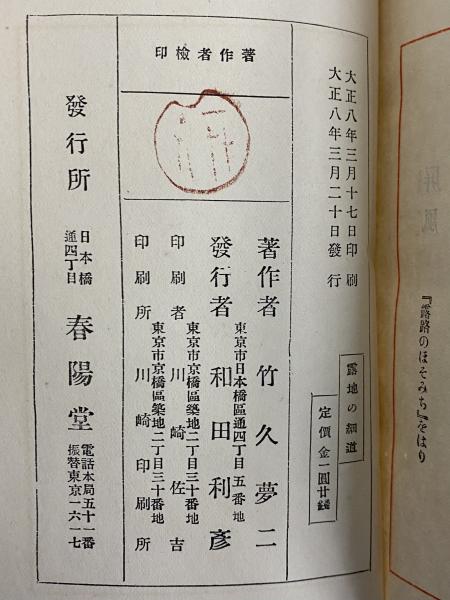 『露路のほそみち』をはり
大正八年三月十七日印刷
大正八年三月二十日發行
露地の細道
定價金一圓廿錢
著作者檢印
著作者 竹久夢二
東京市日本橋區通四丁目五番地
發行者 和田利彥
東京市京橋區築地二丁目三十番地
印刷者 川崎佐吉
東京市京橋區築地二丁目三十番地
印刷所 川崎印刷所
發行所
日本橋
通四丁目
春陽堂
電話本局五十一番
振替東京一六一七